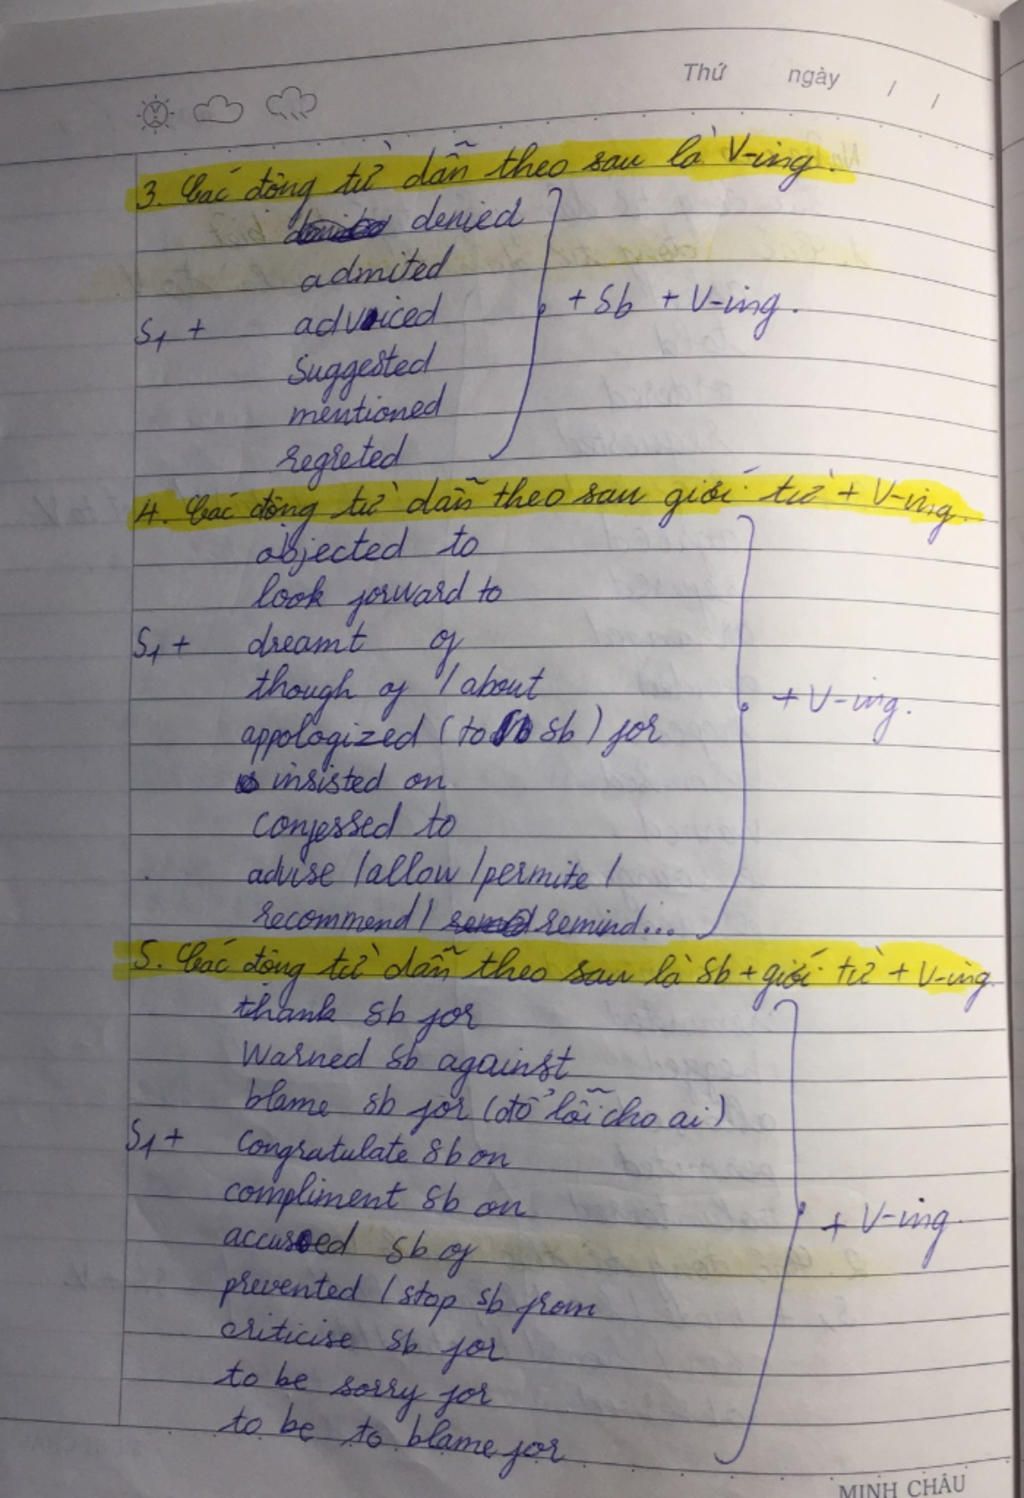 Thứ ngày / /
3. Các động từ dẫn theo sau là V-ing.
denied
admited
S1 + adviced + Sb + V-ing.
Suggested
mentioned
regreted
4. Các động từ dẫn theo sau giới từ + V-ing
objected to
look forward to
S1 + dreamt of
though of / about + V-ing.
appologized (to sb) for
insisted on
confessed to
advise /allow /permite /
recommend / remind...
5. Các động từ dẫn theo sau là Sb + giới từ + V-ing
thank sb for
Warned sb against
blame sb for (đổ lỗi cho ai)
S1 + Congratulate sb on
compliment sb on
accused sb of + V-ing
prevented / stop sb from
criticise sb for
to be sorry for
to be to blame for
MINH CHÂU